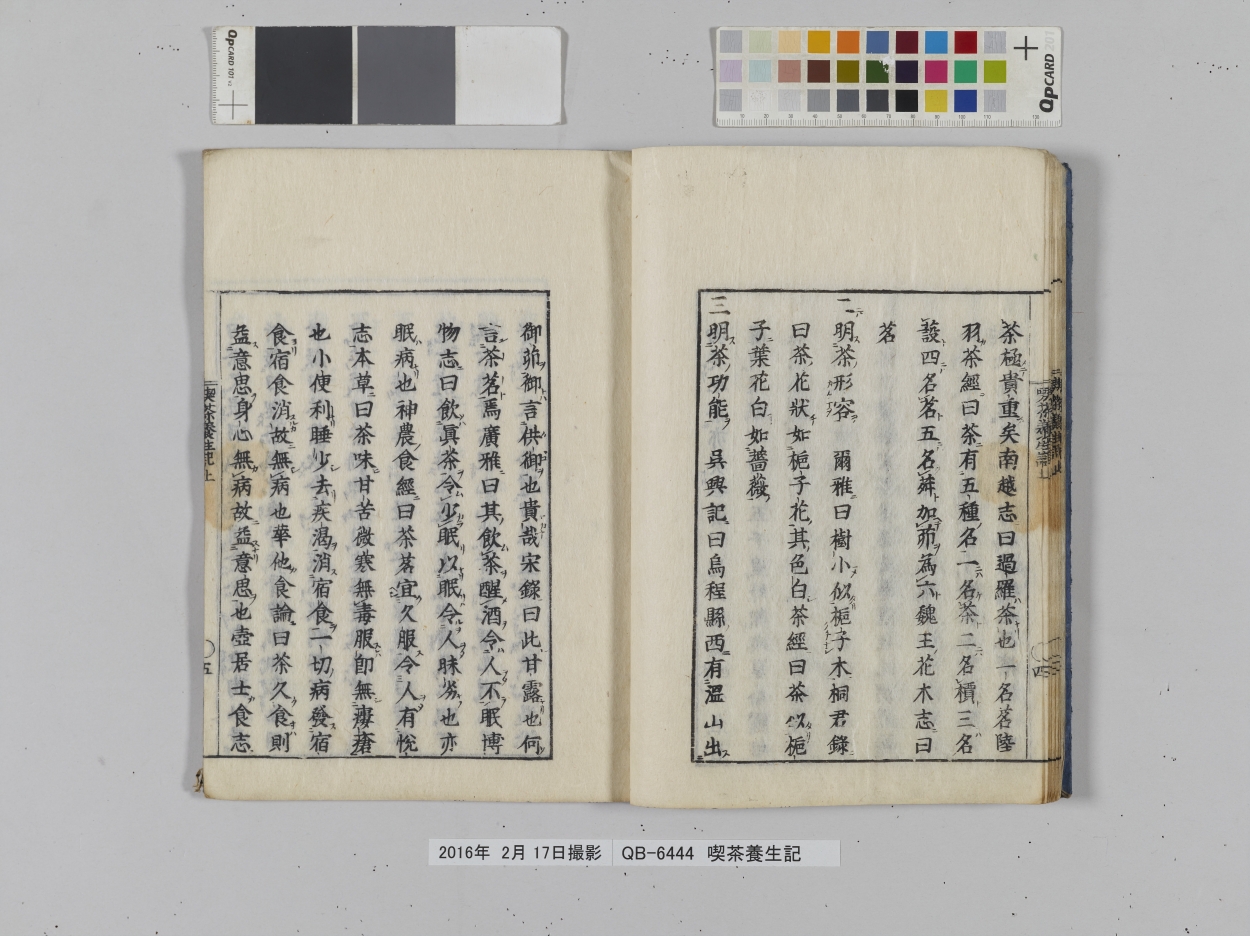 QpCARD 101 v3
QpCARD 201
茶極貴重矣南越志曰過羅茶也一名茗陸
羽茶經曰茶有五種名一名茶二名檟三名
蔎四名茗五名荈加茆為六魏王花木志曰
茗
二明茶形容 爾雅曰樹小似梔子木桐君錄
曰茶花狀如梔子花其色白茶經曰茶似梔
子葉花白如薔薇
三明茶功能 吳興記曰烏程縣西有溫山出
御茆御言供御也貴哉宋錄曰此甘露也何
言茶茗焉廣雅曰其飲茶醒酒令人不眠博
物志曰飲眞茶令少眠以眠令人昧劣也亦
眠病也神農食經曰茶茗宜久服令人有悅
志本草曰茶味甘苦微寒無毒服卽無瘻瘡
也小便利睡少去疾渴消宿食一切病發宿
食宿食消故無病也華他食論曰茶久食則
益意思身心無病故益意思也壺居士食志
喫茶養生記上
四
喫茶養生記上
五
2016年 2月17日撮影 QB-6444 喫茶養生記